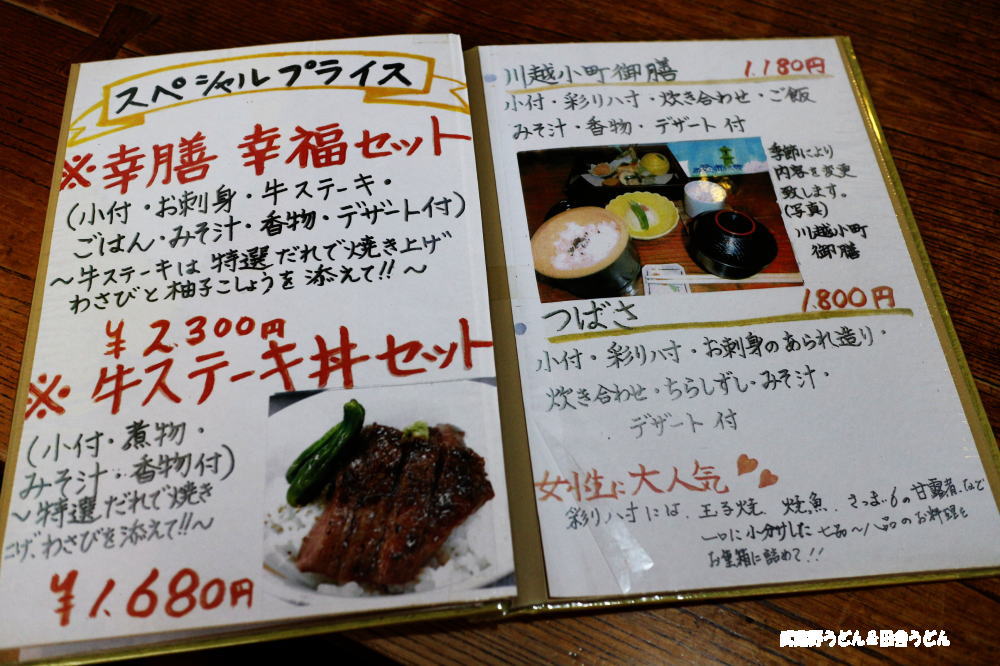 スペシャルプライス
※幸膳 幸福セット
(小付・お刺身・牛ステーキ・
ごはん・みそ汁・香物・デザート付)
～牛ステーキは 特選 だれで焼き上げ
わさびと 柚子こしょうを 添えて!!～
¥2,300円
※牛ステーキ丼セット
(小付・煮物・
みそ汁・香物付)
～特選 だれで焼き
上げ、わさびを添えて!!～
¥1,680円
川越小町御膳 1,180円
小付・彩り八寸・炊き合わせ・ご飯
みそ汁・香物・デザート付
季節により
内容を変更
致します。
(写真)
川越小町
御膳
つばさ 1,800円
小付・彩り八寸・お刺身のあられ造り・
炊き合わせ・ちらしずし・みそ汁・
デザート 付
女性に大人気
彩り八寸には、玉子焼、焼魚、さつまいもの甘露煮など
一口に小分けした 七品～八品のお料理を
お重箱に詰めて!!
武蔵野うどん＆田舎うどん